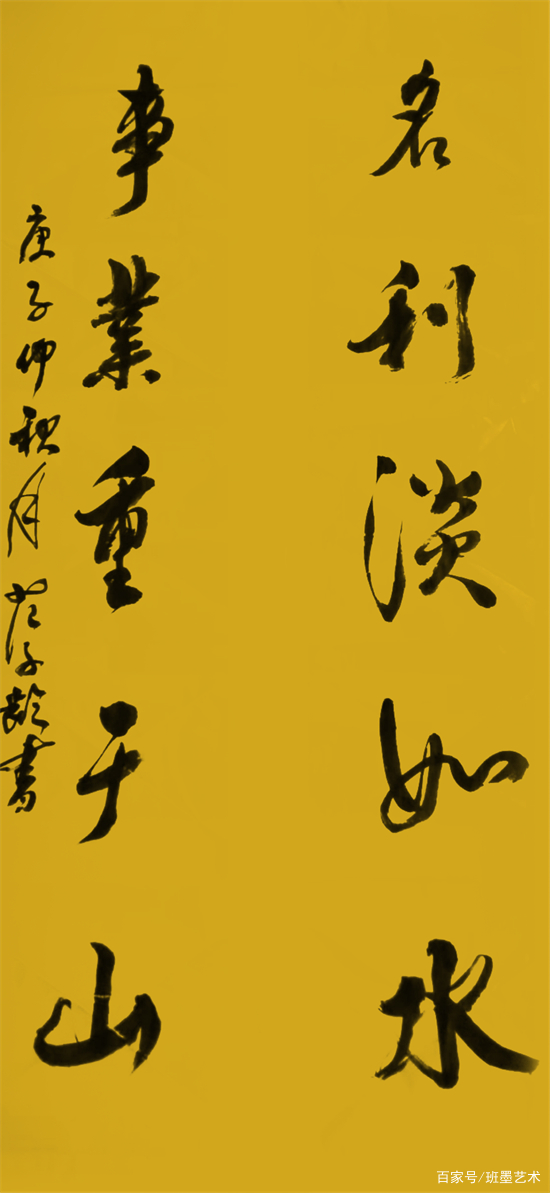 名利淡如水
事業重于山
庚子仲秋月 子龄書
百家号/班墨艺术